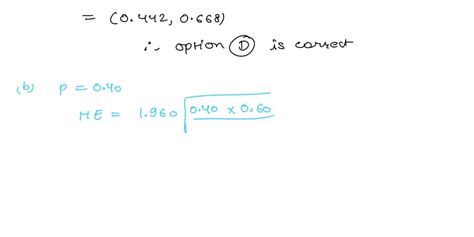 = (0.442, 0.668)
∴ option (D) is correct
(b) P = 0.40
ME = 1.960 √0.40 x 0.60